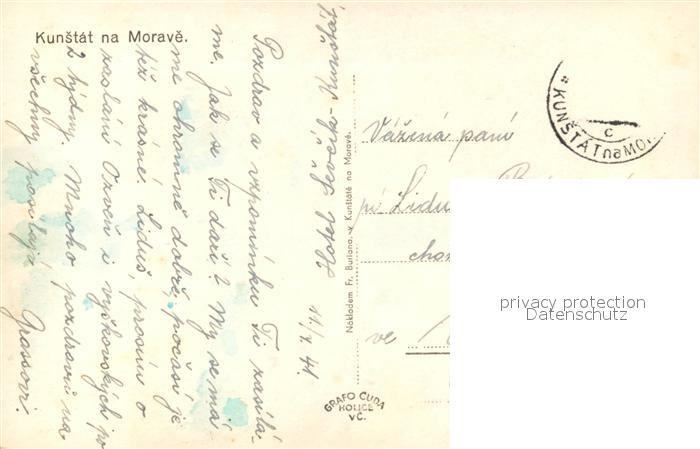 Kunštát na Moravě.
Pozdrav a vzpomínku Ti zasílá-
me. Jak se Ti daří? My se má-
me ohromně dobře, počasí je
též krásné. Liduš, prosím o
zaslání Ozvěn i vyškovských po
2 týdny. Mnoho pozdravů na
všechny posílají
Grossovi.
14/7. 41.
Nákladem Fr. Buriana, v Kunštátě na Moravě.
GRAFO ČUDA
HOLICE
VČ.
KUNŠTÁT na MO
C
Vážená paní
pí Lidu
ve
privacy protection
Datenschutz